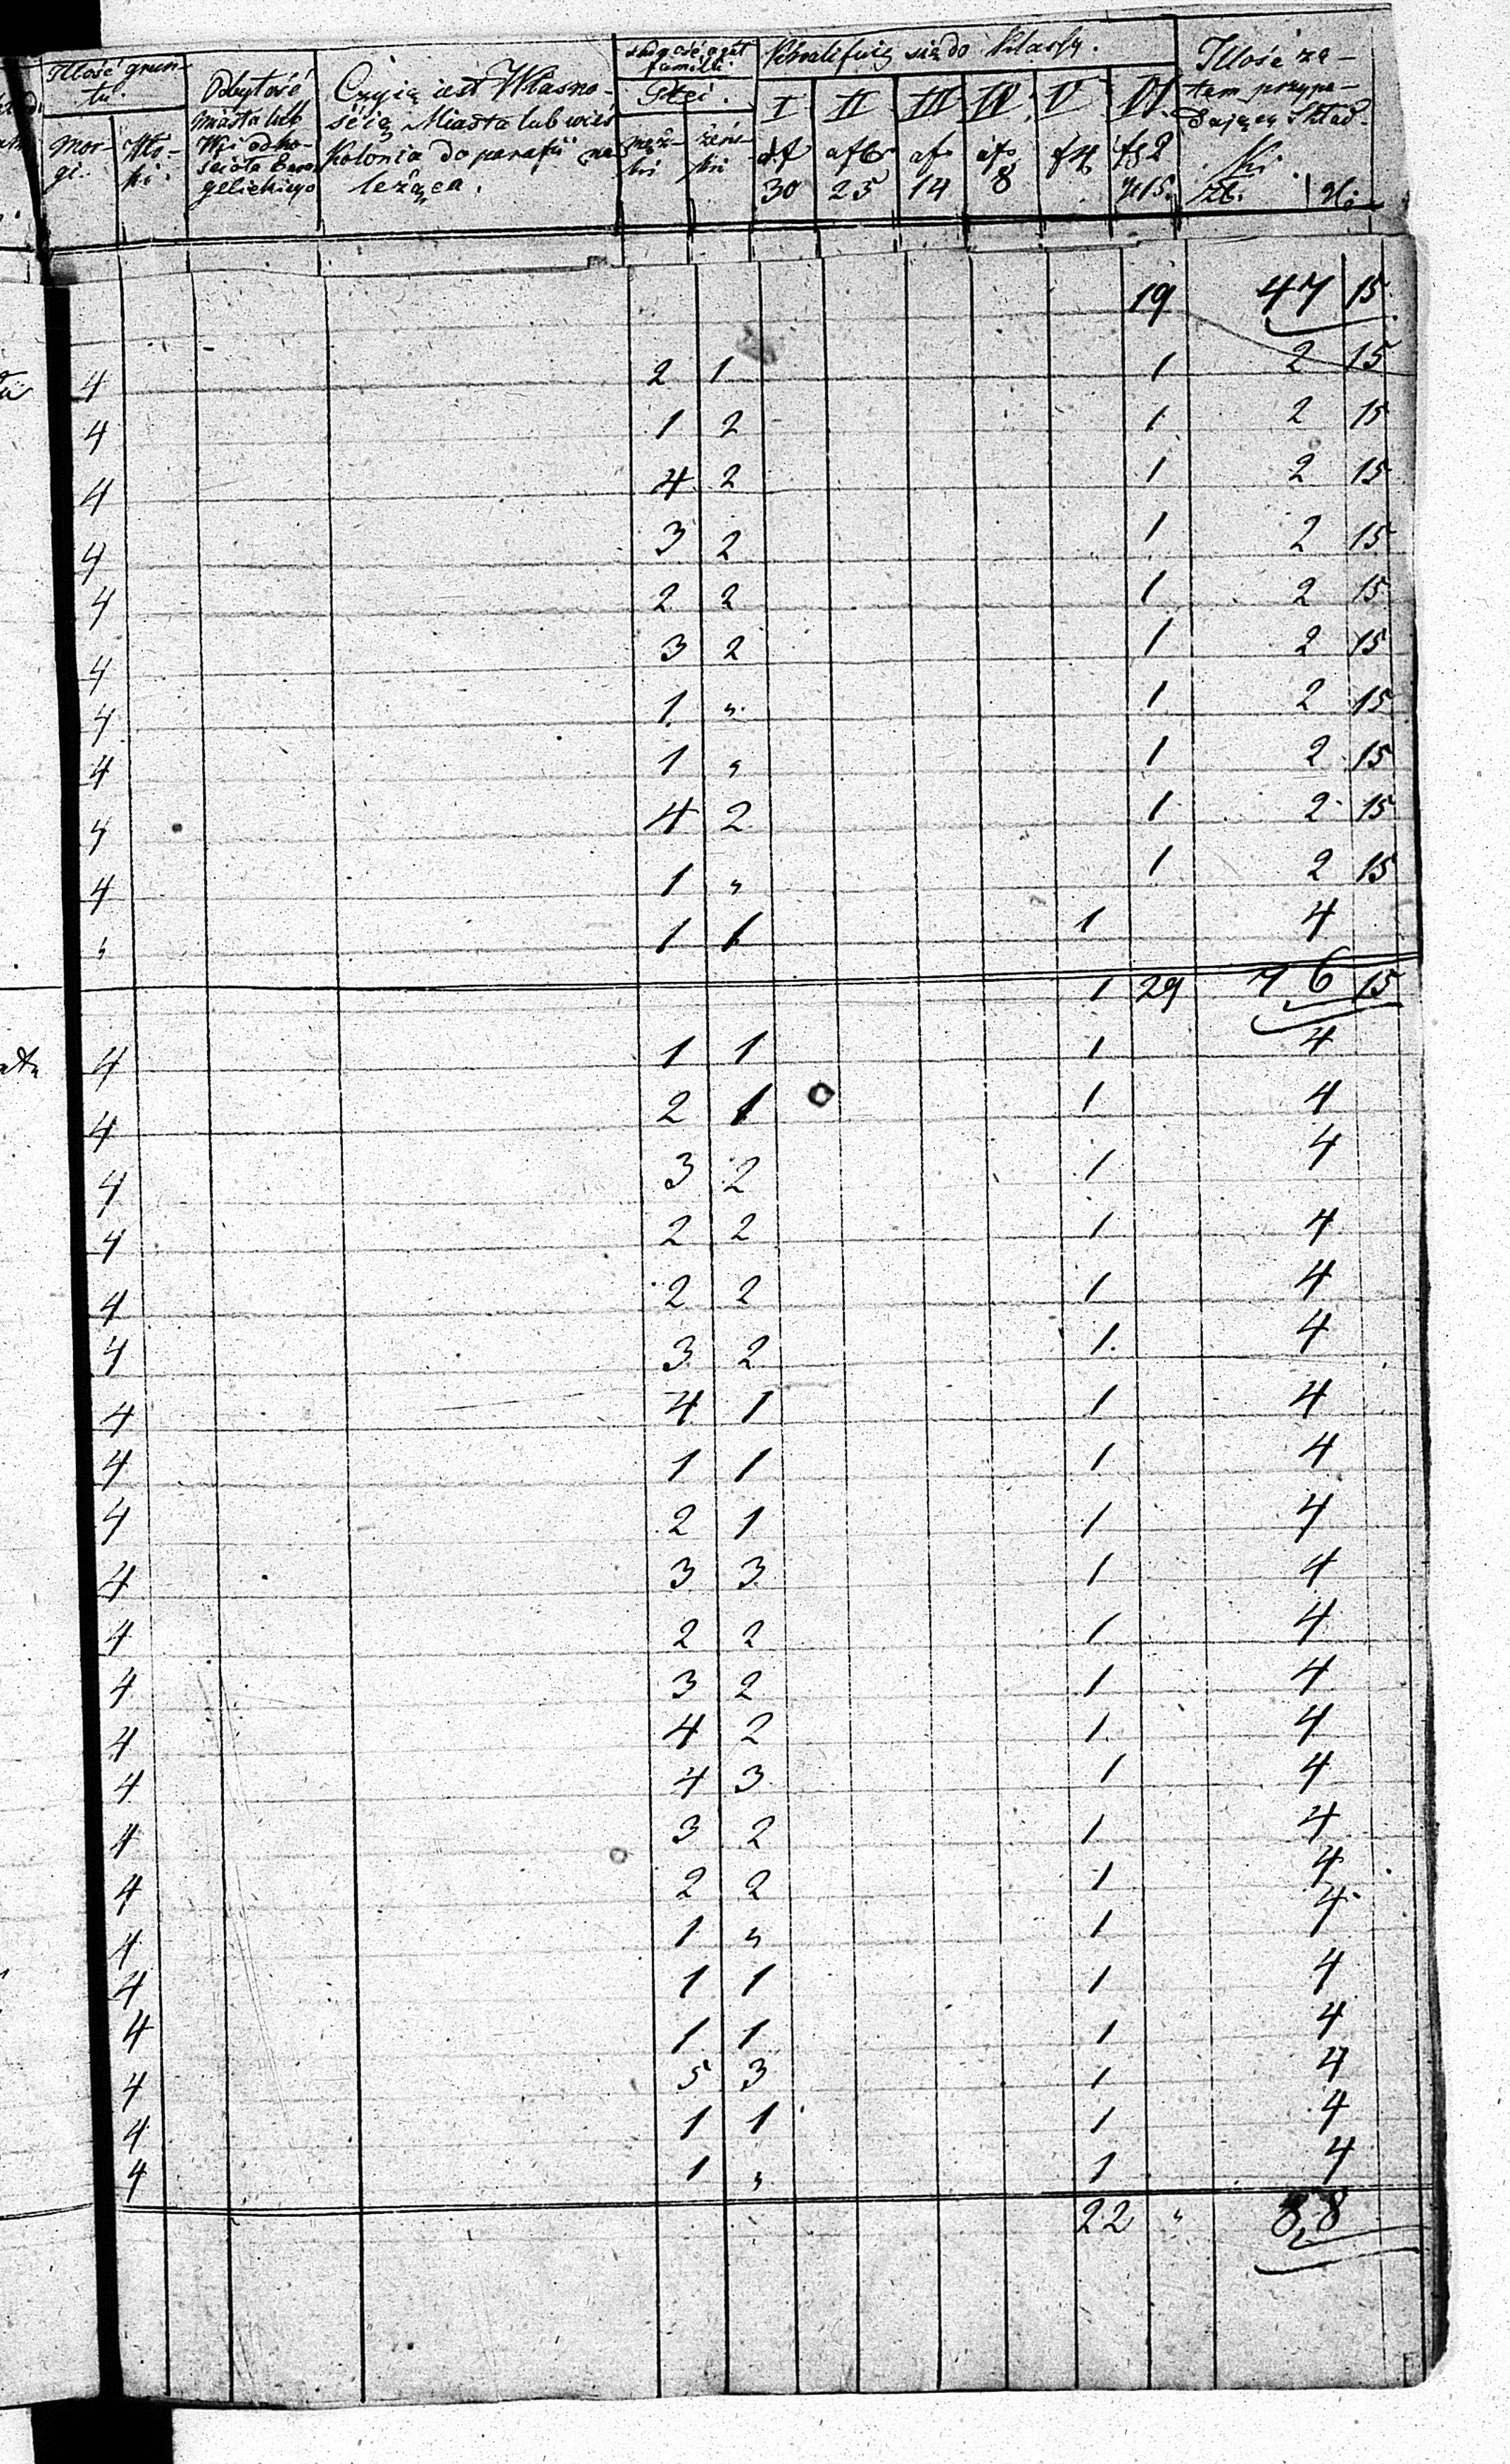 Ilość grun-
tu.
Mor-
gi.
Odległość
Miasta lub
Wsi od ko-
ścioła Ewan
gelickiego
Czyią iest Własno-
ścią Miasta lub wieś
Kolonia do parafii na
leżąca.
familii
Płci.
męz-
ki
żeń-
ski
Kwalifuią się do klassy.
I
30
II
25
III
14
IV
8
V
f 4
VI
f 2
15.
Ilość za-
tem przypa-
dającej Skład-
ki
zł. gr.
19 47 15
4 2 1 1 2 15
4 1 2 1 2 15
4 4 2 1 2 15
4 3 2 1 2 15
4 2 2 1 2 15
4 3 2 1 2 15
4 1 " 1 2 15
4 1 " 1 2 15
4 4 2 1 2 15
4 1 " 1 2 15
" 1 1 1 4
1 29 76 15
4 1 1 1 4
4 2 1 1 4
4 3 2 1 4
4 2 2 1 4
4 2 2 1 4
4 3 2 1 4
4 4 1 1 4
4 1 1 1 4
4 2 1 1 4
4 3 3 1 4
4 2 2 1 4
4 3 2 1 4
4 4 2 1 4
4 4 3 1 4
4 3 2 1 4
4 2 2 1 4
4 1 " 1 4
4 1 1 1 4
4 1 1 1 4
4 5 3 1 4
4 1 1 1 4
4 1 " 1 4
22 " 88